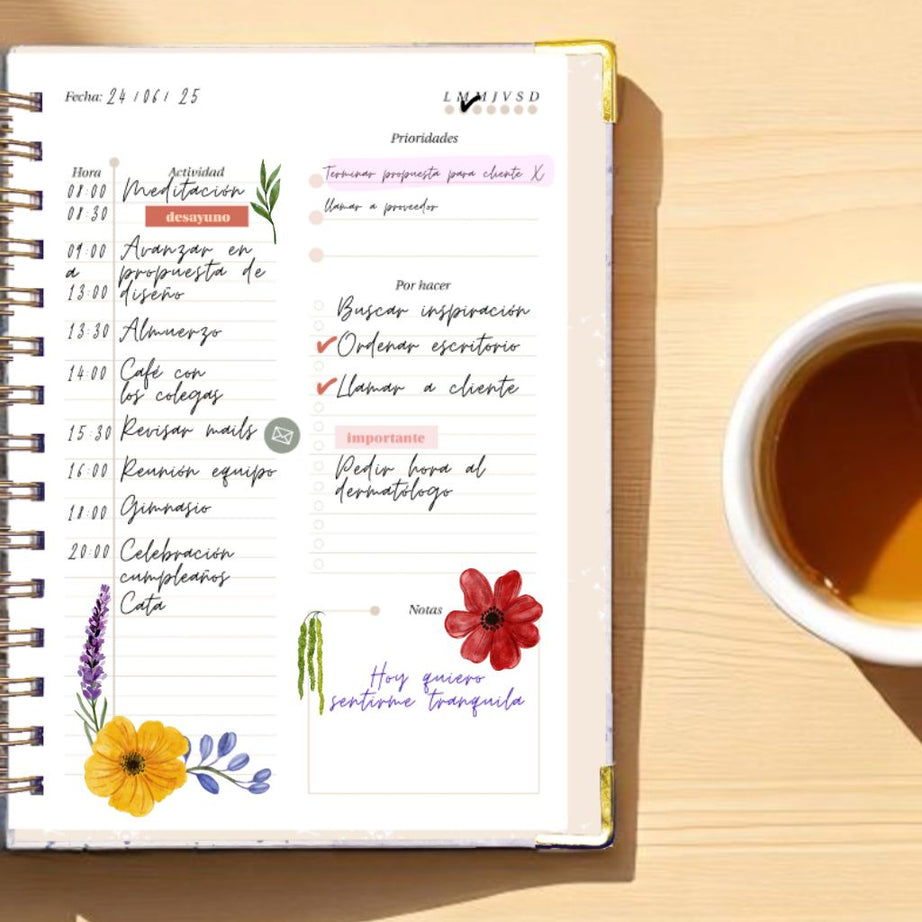 Fecha: 24/06/ 25
L M M J V S D
Hora Actividad
08:00 Meditación
08:30 desayuno
09:00 Avanzar en
a propuesta de
13:00 diseño
13:30 Almuerzo
14:00 Café con
los colegas
15:30 Revisar mails
16:00 Reunión equipo
18:00 Gimnasio
20:00 Celebración
cumpleaños
Cata
Prioridades
Terminar propuesta para cliente X
Llamar a proveedor
Por hacer
Buscar inspiración
Ordenar escritorio
Llamar a cliente
importante
Pedir hora al
dermatólogo
Notas
Hoy quiero
sentirme tranquila